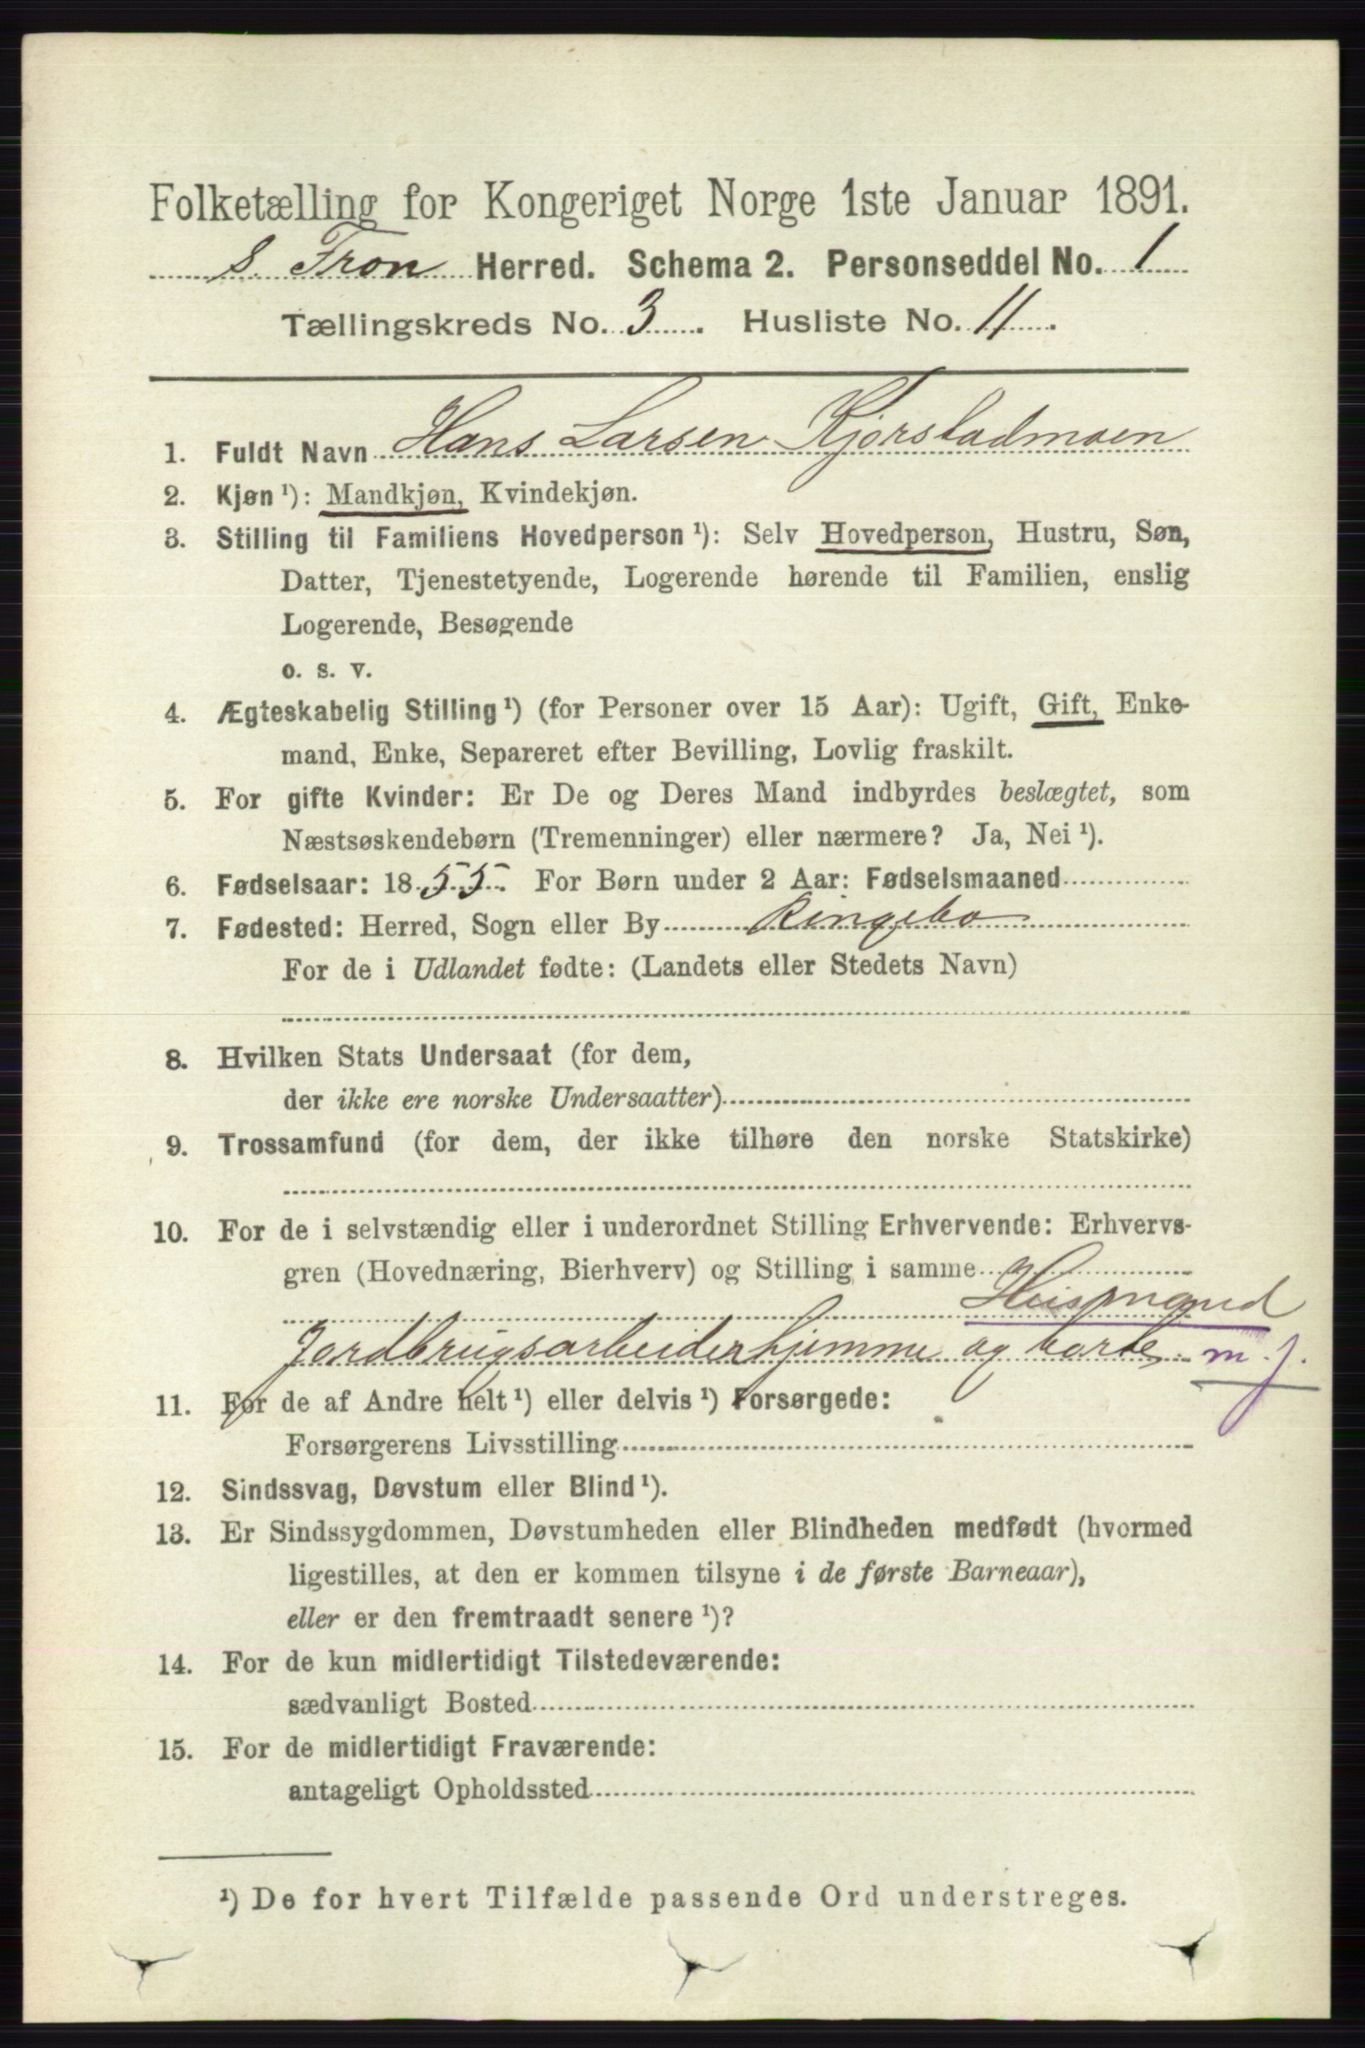 Folketælling for Kongeriget Norge 1ste Januar 1891.
S. Fron Herred. Schema 2. Personseddel No. 1
Tællingskreds No. 3. Husliste No. 11.
1. Fuldt Navn Hans Larsen Kjorstadmoen
2. Kjøn ¹): Mandkjøn, Kvindekjøn.
3. Stilling til Familiens Hovedperson ¹): Selv Hovedperson, Hustru, Søn,
Datter, Tjenestetyende, Logerende hørende til Familien, enslig
Logerende, Besøgende
o. s. v.
4. Ægteskabelig Stilling ¹) (for Personer over 15 Aar): Ugift, Gift, Enke-
mand, Enke, Separeret efter Bevilling, Lovlig fraskilt.
5. For gifte Kvinder: Er De og Deres Mand indbyrdes beslægtet, som
Næstsøskendebørn (Tremenninger) eller nærmere? Ja, Nei ¹).
6. Fødselsaar: 1855. For Børn under 2 Aar: Fødselsmaaned
7. Fødested: Herred, Sogn eller By Ringebo
For de i Udlandet fødte: (Landets eller Stedets Navn)
8. Hvilken Stats Undersaat (for dem,
der ikke ere norske Undersaatter)
9. Trossamfund (for dem, der ikke tilhøre den norske Statskirke)
10. For de i selvstændig eller i underordnet Stilling Erhvervende: Erhvervs-
gren (Hovednæring, Bierhverv) og Stilling i samme
Husmand
Jordbrugsarbeider hjemme og borte m. j.
11. For de af Andre helt ¹) eller delvis ¹) Forsørgede:
Forsørgerens Livsstilling
12. Sindssvag, Døvstum eller Blind ¹).
13. Er Sindssygdommen, Døvstumheden eller Blindheden medfødt (hvormed
ligestilles, at den er kommen tilsyne i de første Barneaar),
eller er den fremtraadt senere ¹)?
14. For de kun midlertidigt Tilstedeværende:
sædvanligt Bosted
15. For de midlertidigt Fraværende:
antageligt Opholdssted
¹) De for hvert Tilfælde passende Ord understreges.